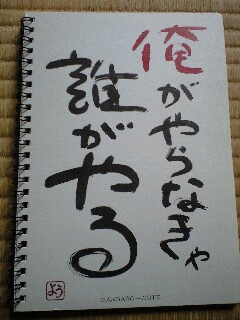 俺がやらなきゃ
誰がやる
よう